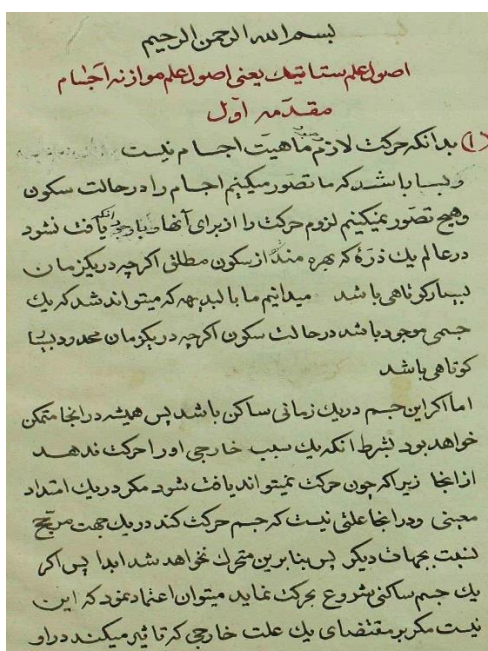 بسم الله الرحمن الرحیم
اصول علم ستاتیك یعنی اصول علم موازنه اجسام
مقدمه اول
(۱) بدانكه حركت لازم ماهیت اجسام نیست
و بسا باشد كه ما تصور میكنیم اجسام را در حالت سكون
وهیچ تصور نمیكنیم لزوم حركت را از برای آنها یافت نشود
در عالم یك ذرهٔ كه بهره مند از سكون مطلقی اگرچه دریكزمان
بسیار كوتاهی باشد میدانیم ما بالبدیهه كه میتواند شد كه یك
جسمی موجود باشد درحالت سكون اگرچه دریكزمان محدود بسیا
كوتاهی باشد
اما اگر این جسم دریك زمانی ساكن باشد پس همیشه در انجا متمكن
خواهد بود بشرط انكه یك سبب خارجی اورا حركت ندهد
از انجا زیرا كه چون حركت نمیتواند یافت شود مگر دریك امتداد
معینی ودر انجا علتی نیست كه جسم حركت كند دریك جهت مرجح
نسبت بجهات دیگر پس بنابرین متحرك نخواهد شد ابدا پس اگر
یك جسم ساكنی شروع بحركت نماید میتوان اعتماد نمود كه این
نیست مگر بر مقتضای یك علت خارجی كه تاثیر میكند در او